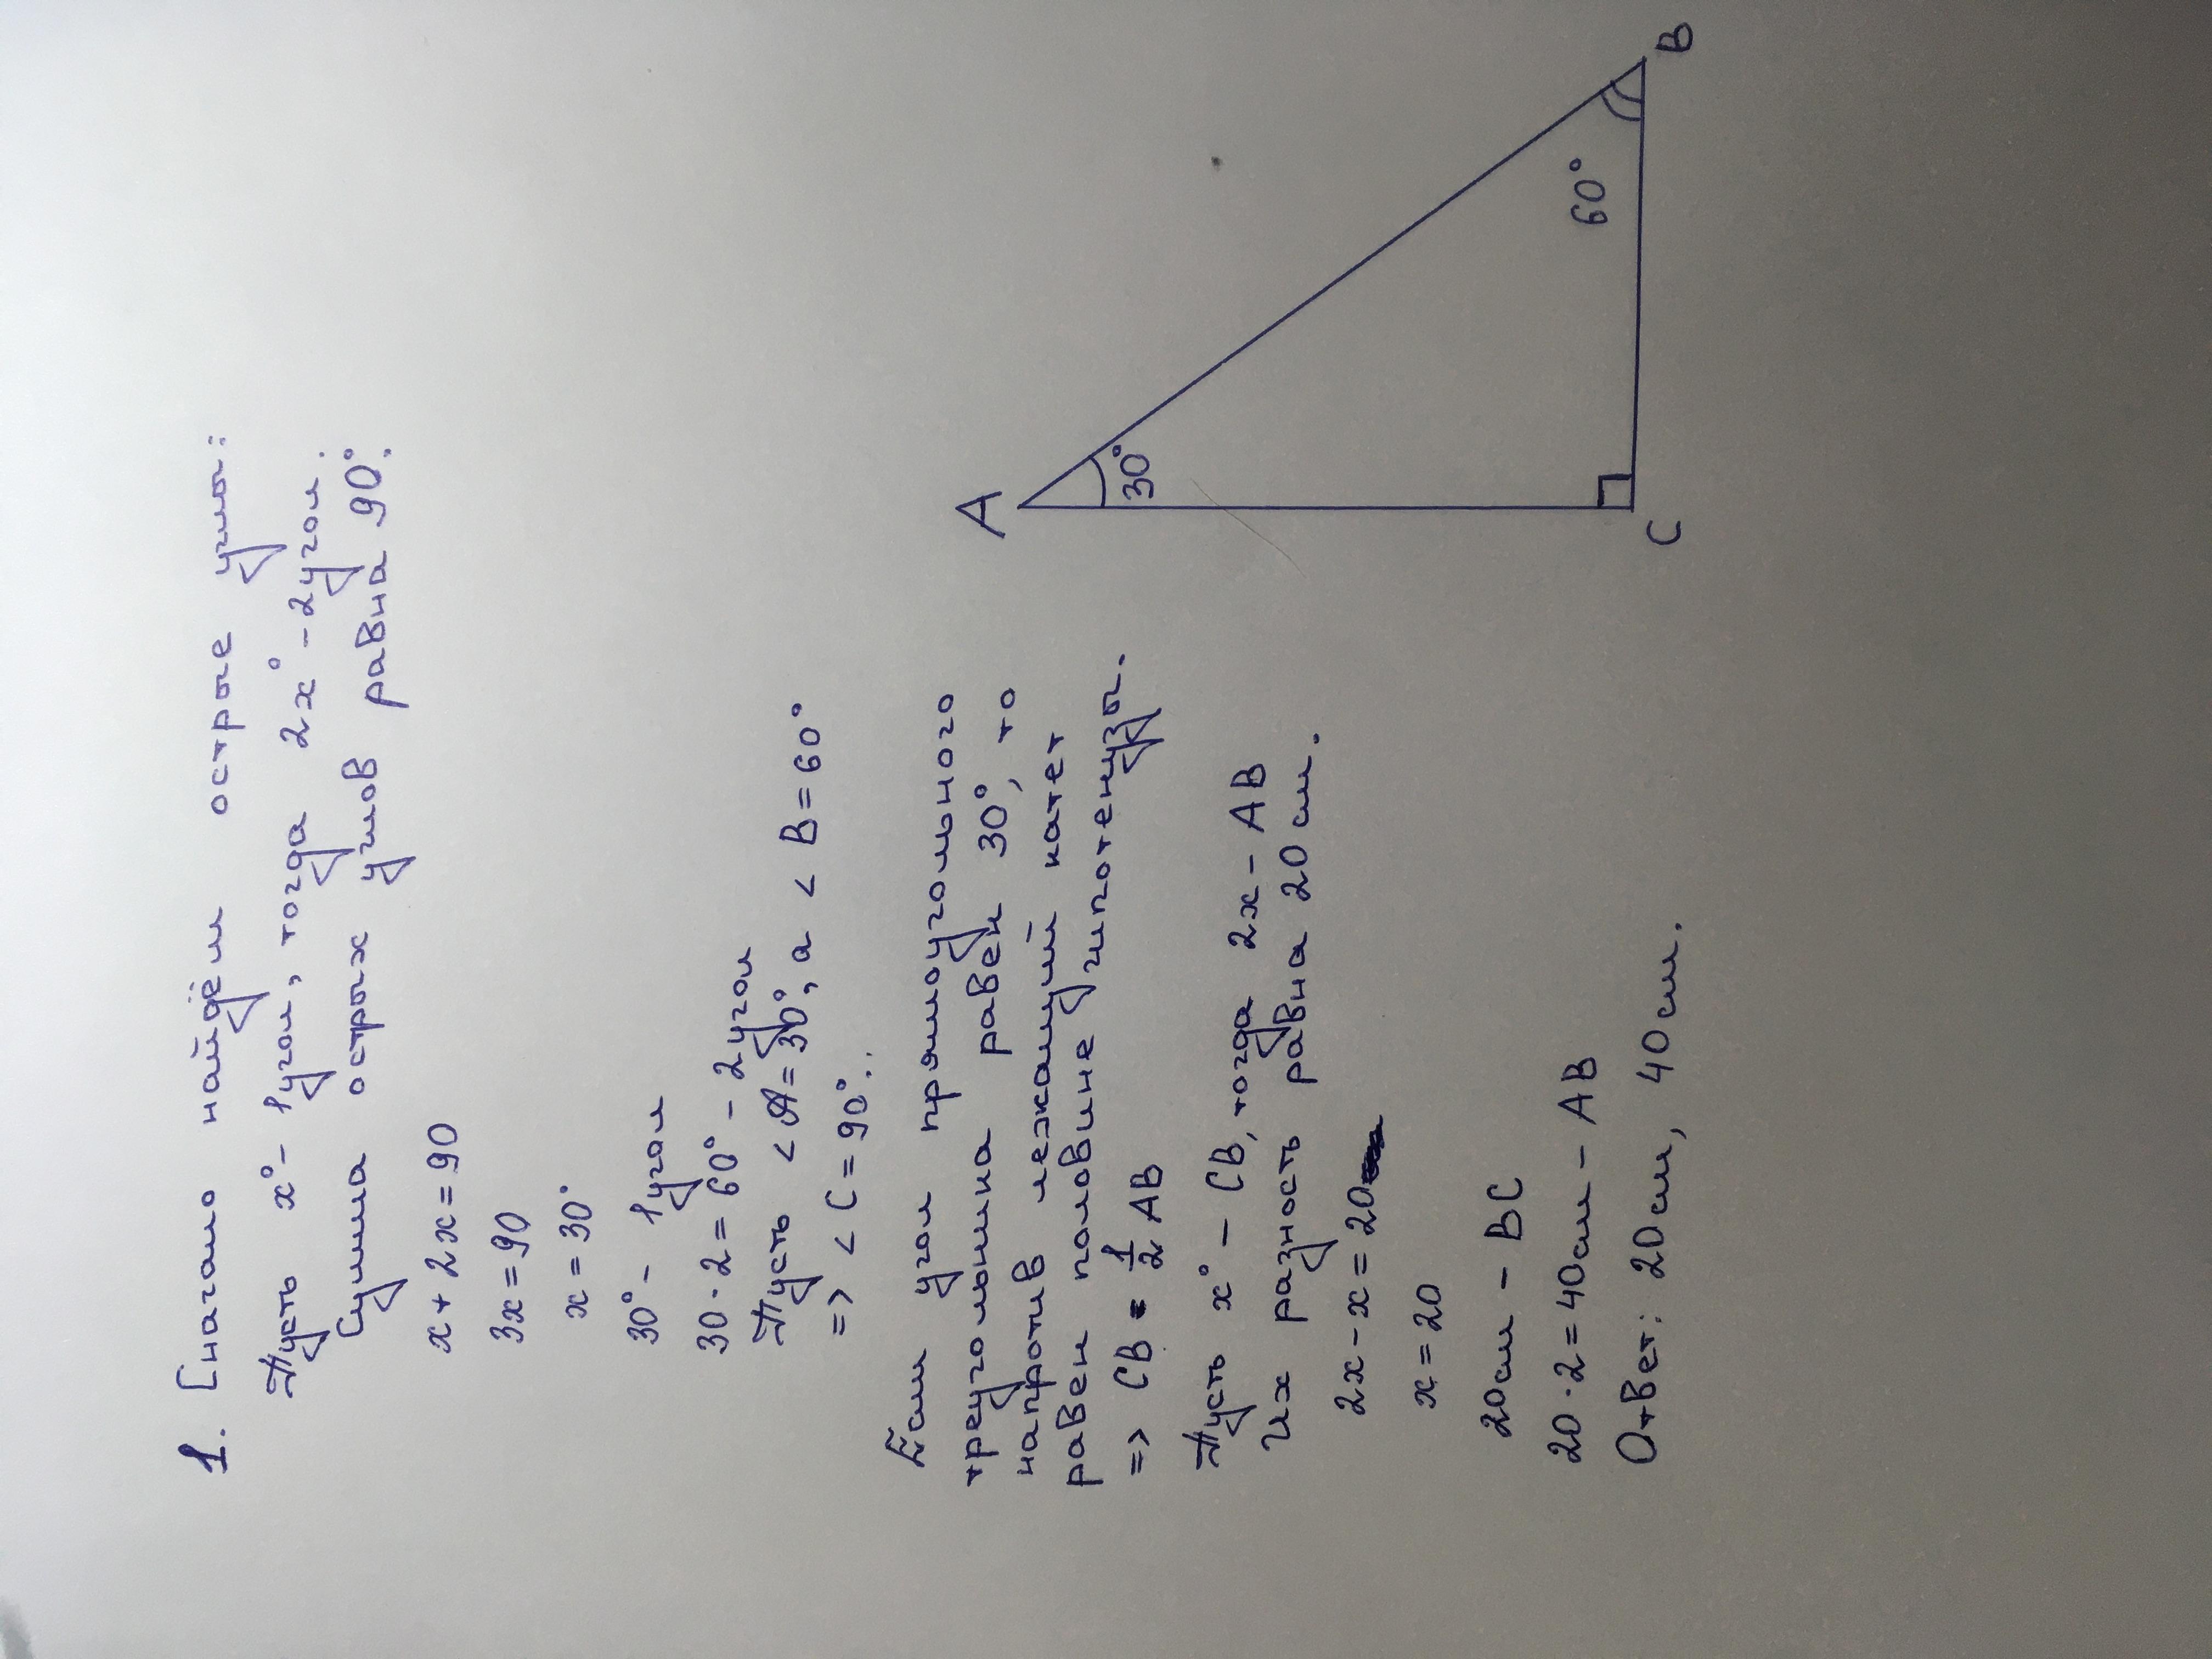 1. Сначало найдём острые углы:
Пусть x° - 1угол, тогда 2x° - 2угол.
Сумма острых углов равна 90°.
x + 2x = 90
3x = 90
x = 30°
30° - 1угол
30 · 2 = 60° - 2угол
Пусть < A = 30°, а < B = 60°
=> < C = 90°.
Если угол прямоугольного
треугольника равен 30°, то
напротив лежащий катет
равен половине гипотенузы.
=> CB = 1/2 AB
Пусть x° - CB, тогда 2x - AB
Их разность равна 20 см.
2x - x = 20
x = 20
20см - BC
20 · 2 = 40см - AB
Ответ: 20см, 40см.
A
30°
60°
B
C